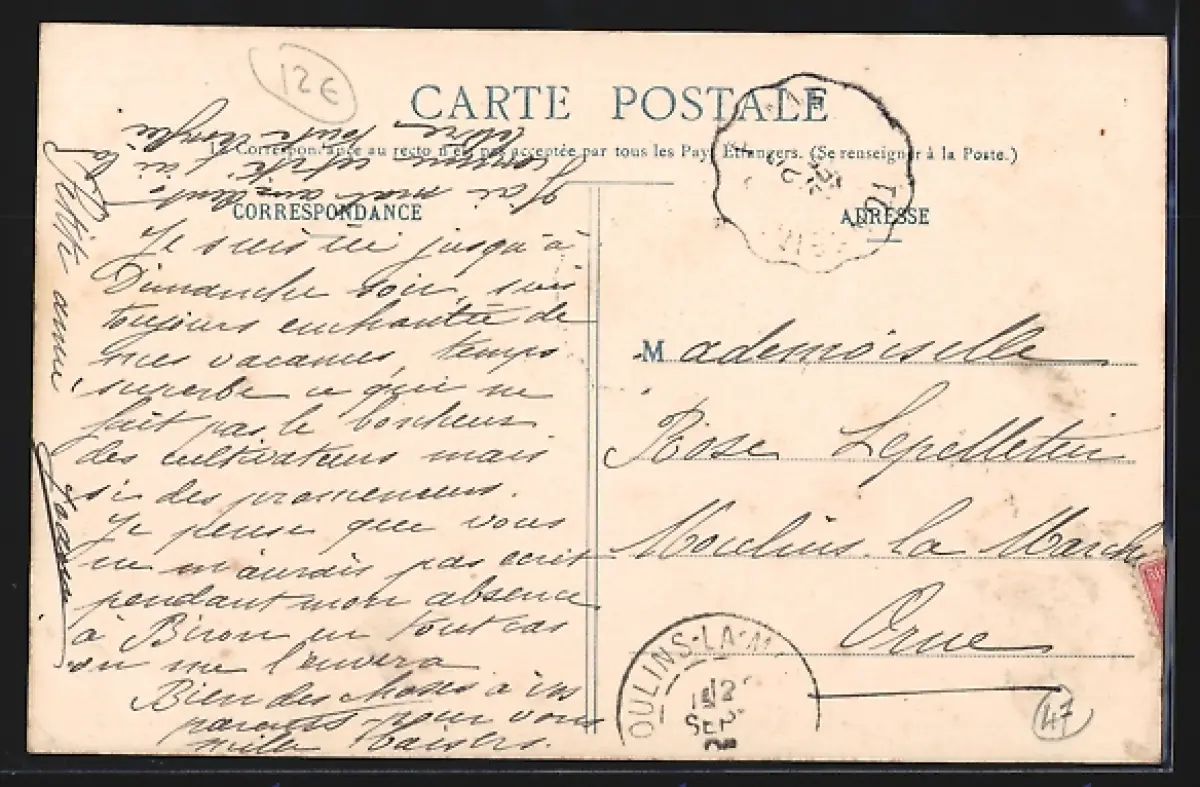 12€
CARTE POSTALE
La Correspondance au recto n'est pas acceptée par tous les Pays Étrangers. (Se renseigner à la Poste.)
CORRESPONDANCE
ADRESSE
Petite amie
Je suis ici jusqu'à
Dimanche soir, suis
toujours enchantée de
mes vacances, temps
superbe ce qui ne
fait pas le bonheur
des cultivateurs mais
si des promeneurs.
Je pense que vous
ne m'aurais pas écrit
pendant mon absence
à Biron en tout cas
on me l'enverra
Bien des choses à vos
parents pour vous
mille baisers.
Mademoiselle
Rose Lepelletier
Moulins-la-Marche
Orne
OULINS-LA-M
12
SEPT
47